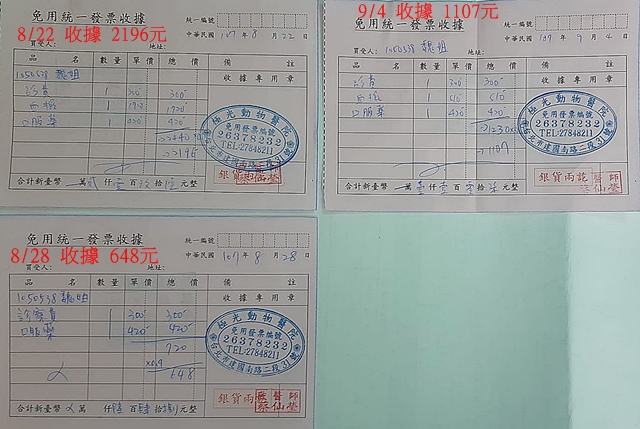 免用統一發票收據
8/22 收據 2196元
統一編號
中華民國 107年 8月 22日
買受人: 地址:
品名 數量 單價 總價 備註
1050538 魏姐 收據專用章
診費 1 300 300
1 1720 1720
口服藥 1 420 420
2196
極光動物醫院
免用發票編號
26378232
TEL:27848211
台北市建國南路二段31號
銀貨兩訖
合計新臺幣 萬貳仟壹百玖拾陸元整
9/4 收據 1107元
免用統一發票收據
統一編號
中華民國 107年 9月 4日
買受人: 1050538 魏姐 地址:
品名 數量 單價 總價 備註
診費 1 300 300 收據專用章
1 510 510
口服藥 1 420 420
1230
1107
極光動物醫院
免用發票編號
26378232
TEL:27848211
台北市建國南路二段31號
銀貨兩訖 醫師
合計新臺幣 萬壹仟壹百零拾柒元整
免用統一發票收據
8/28 收據 648元
統一編號
中華民國 107年 8月 28日
買受人: 地址:
品名 數量 單價 總價 備註
1050538 魏姐 收據專用章
診察費 1 300 300
口服藥 1 420 420
720
x0.9
648
極光動物醫院
免用發票編號
26378232
TEL:27848211
台北市建國南路二段31號
銀貨兩訖 醫師
合計新臺幣 萬 仟陸百肆拾捌元整